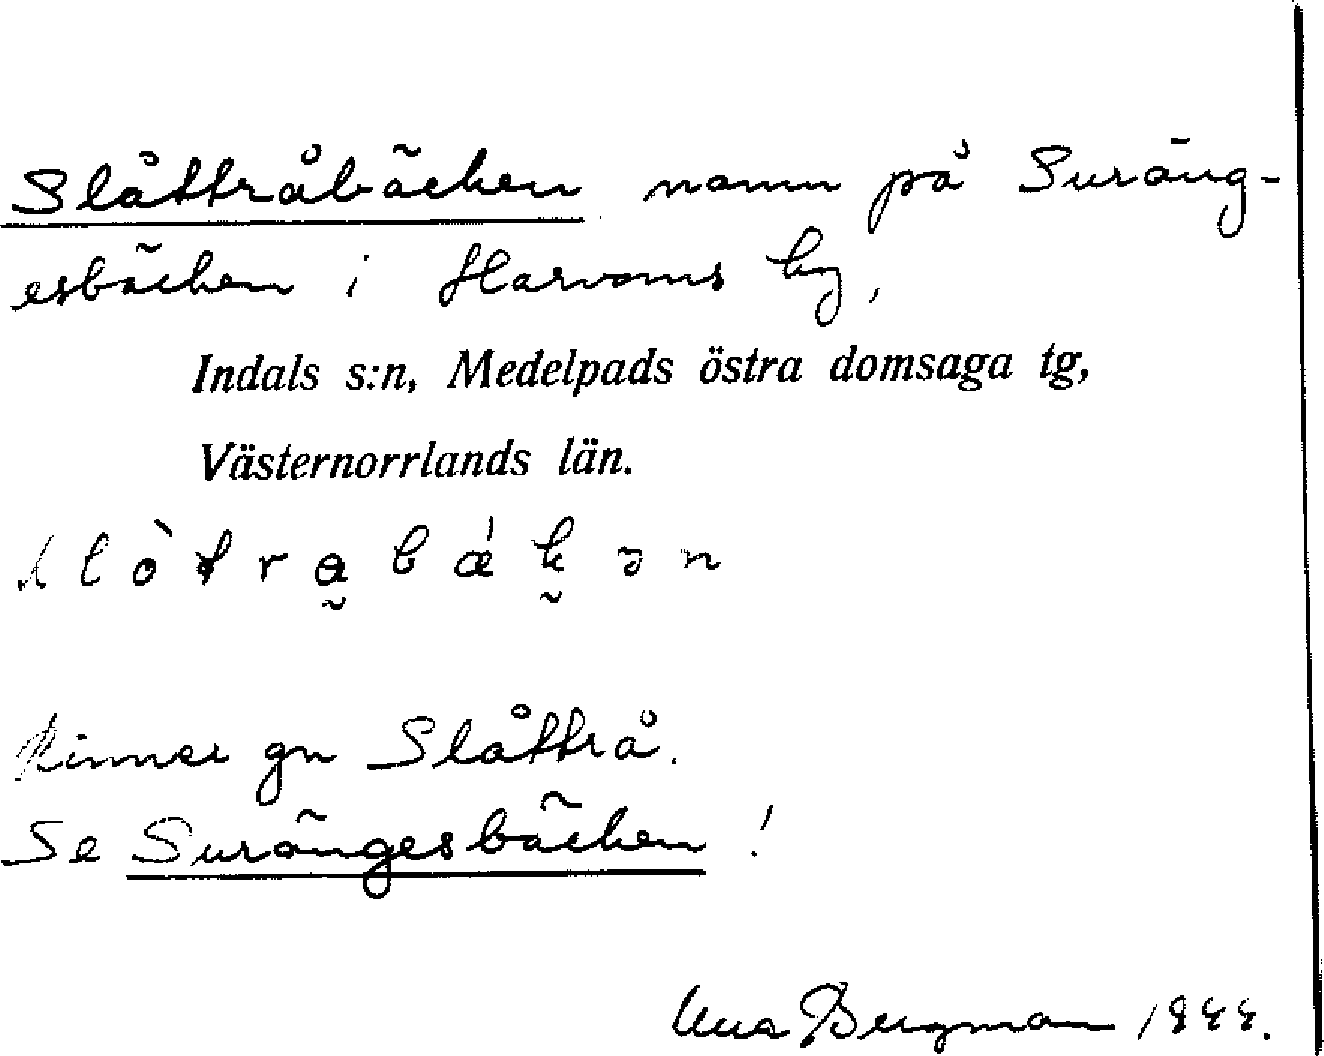 Slåtträbäcken namn på Suräng-
esbäcken i Harvoms by,
Indals s:n, Medelpads östra domsaga tg,
Västernorrlands län.
Rinner gn Slåttrå.
Se Surängesbäcken!
Bergman 1944.